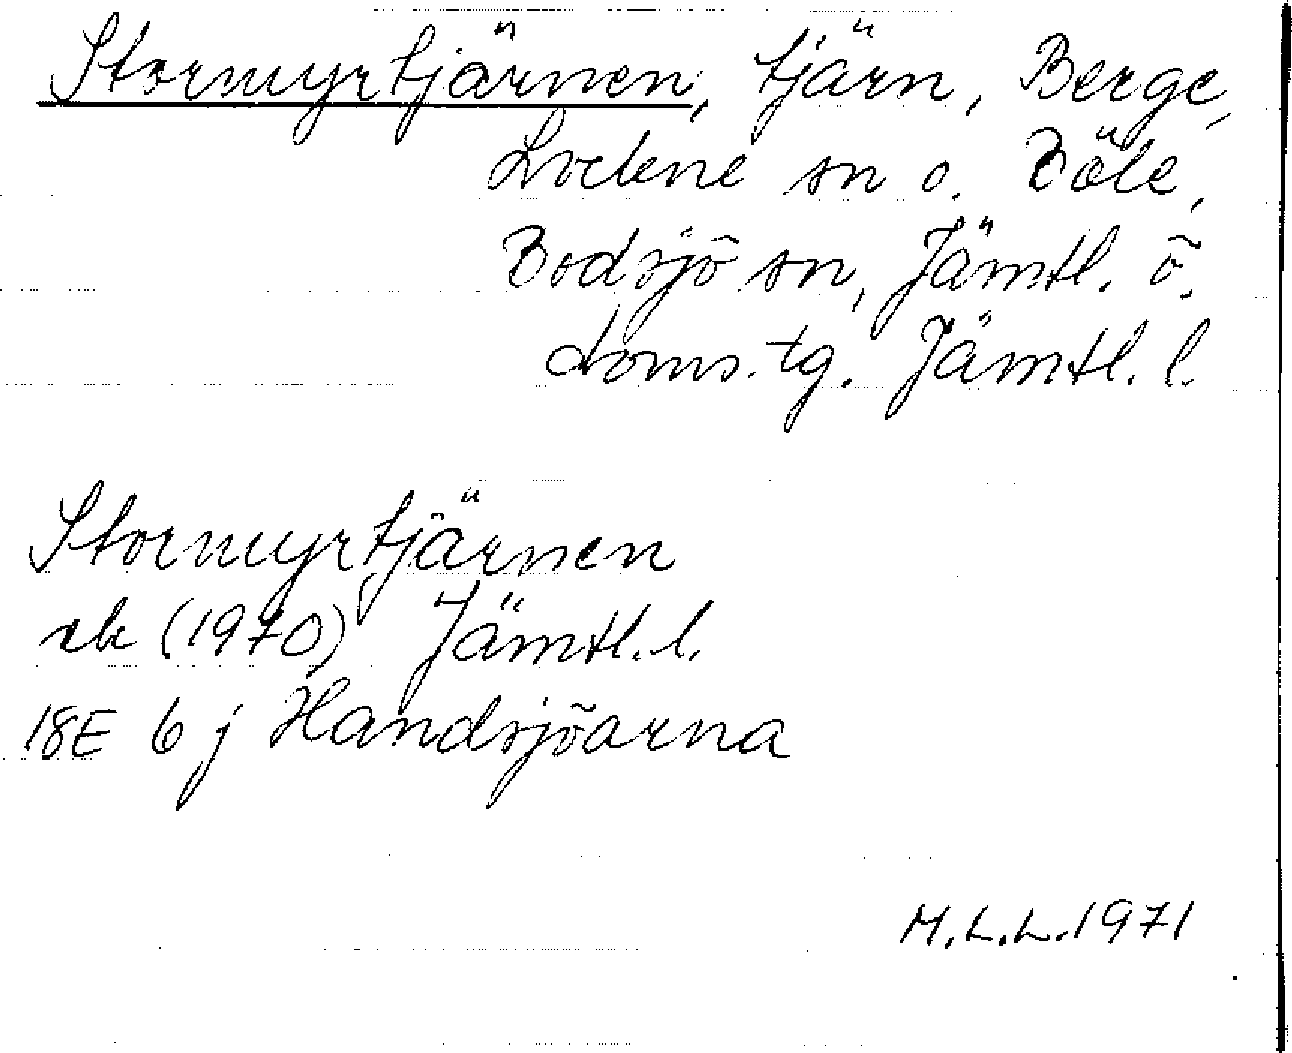 Stormyrtjärnen, tjärn, Berge,
Lockne sn o. Böle,
Bodsjö sn, Jämtl. ö.
doms. tg. Jämtl. l.
Stormyrtjärnen
rak (1970) Jämtl. l.
18E 6 j Handsjöarna
M.L.L. 1971